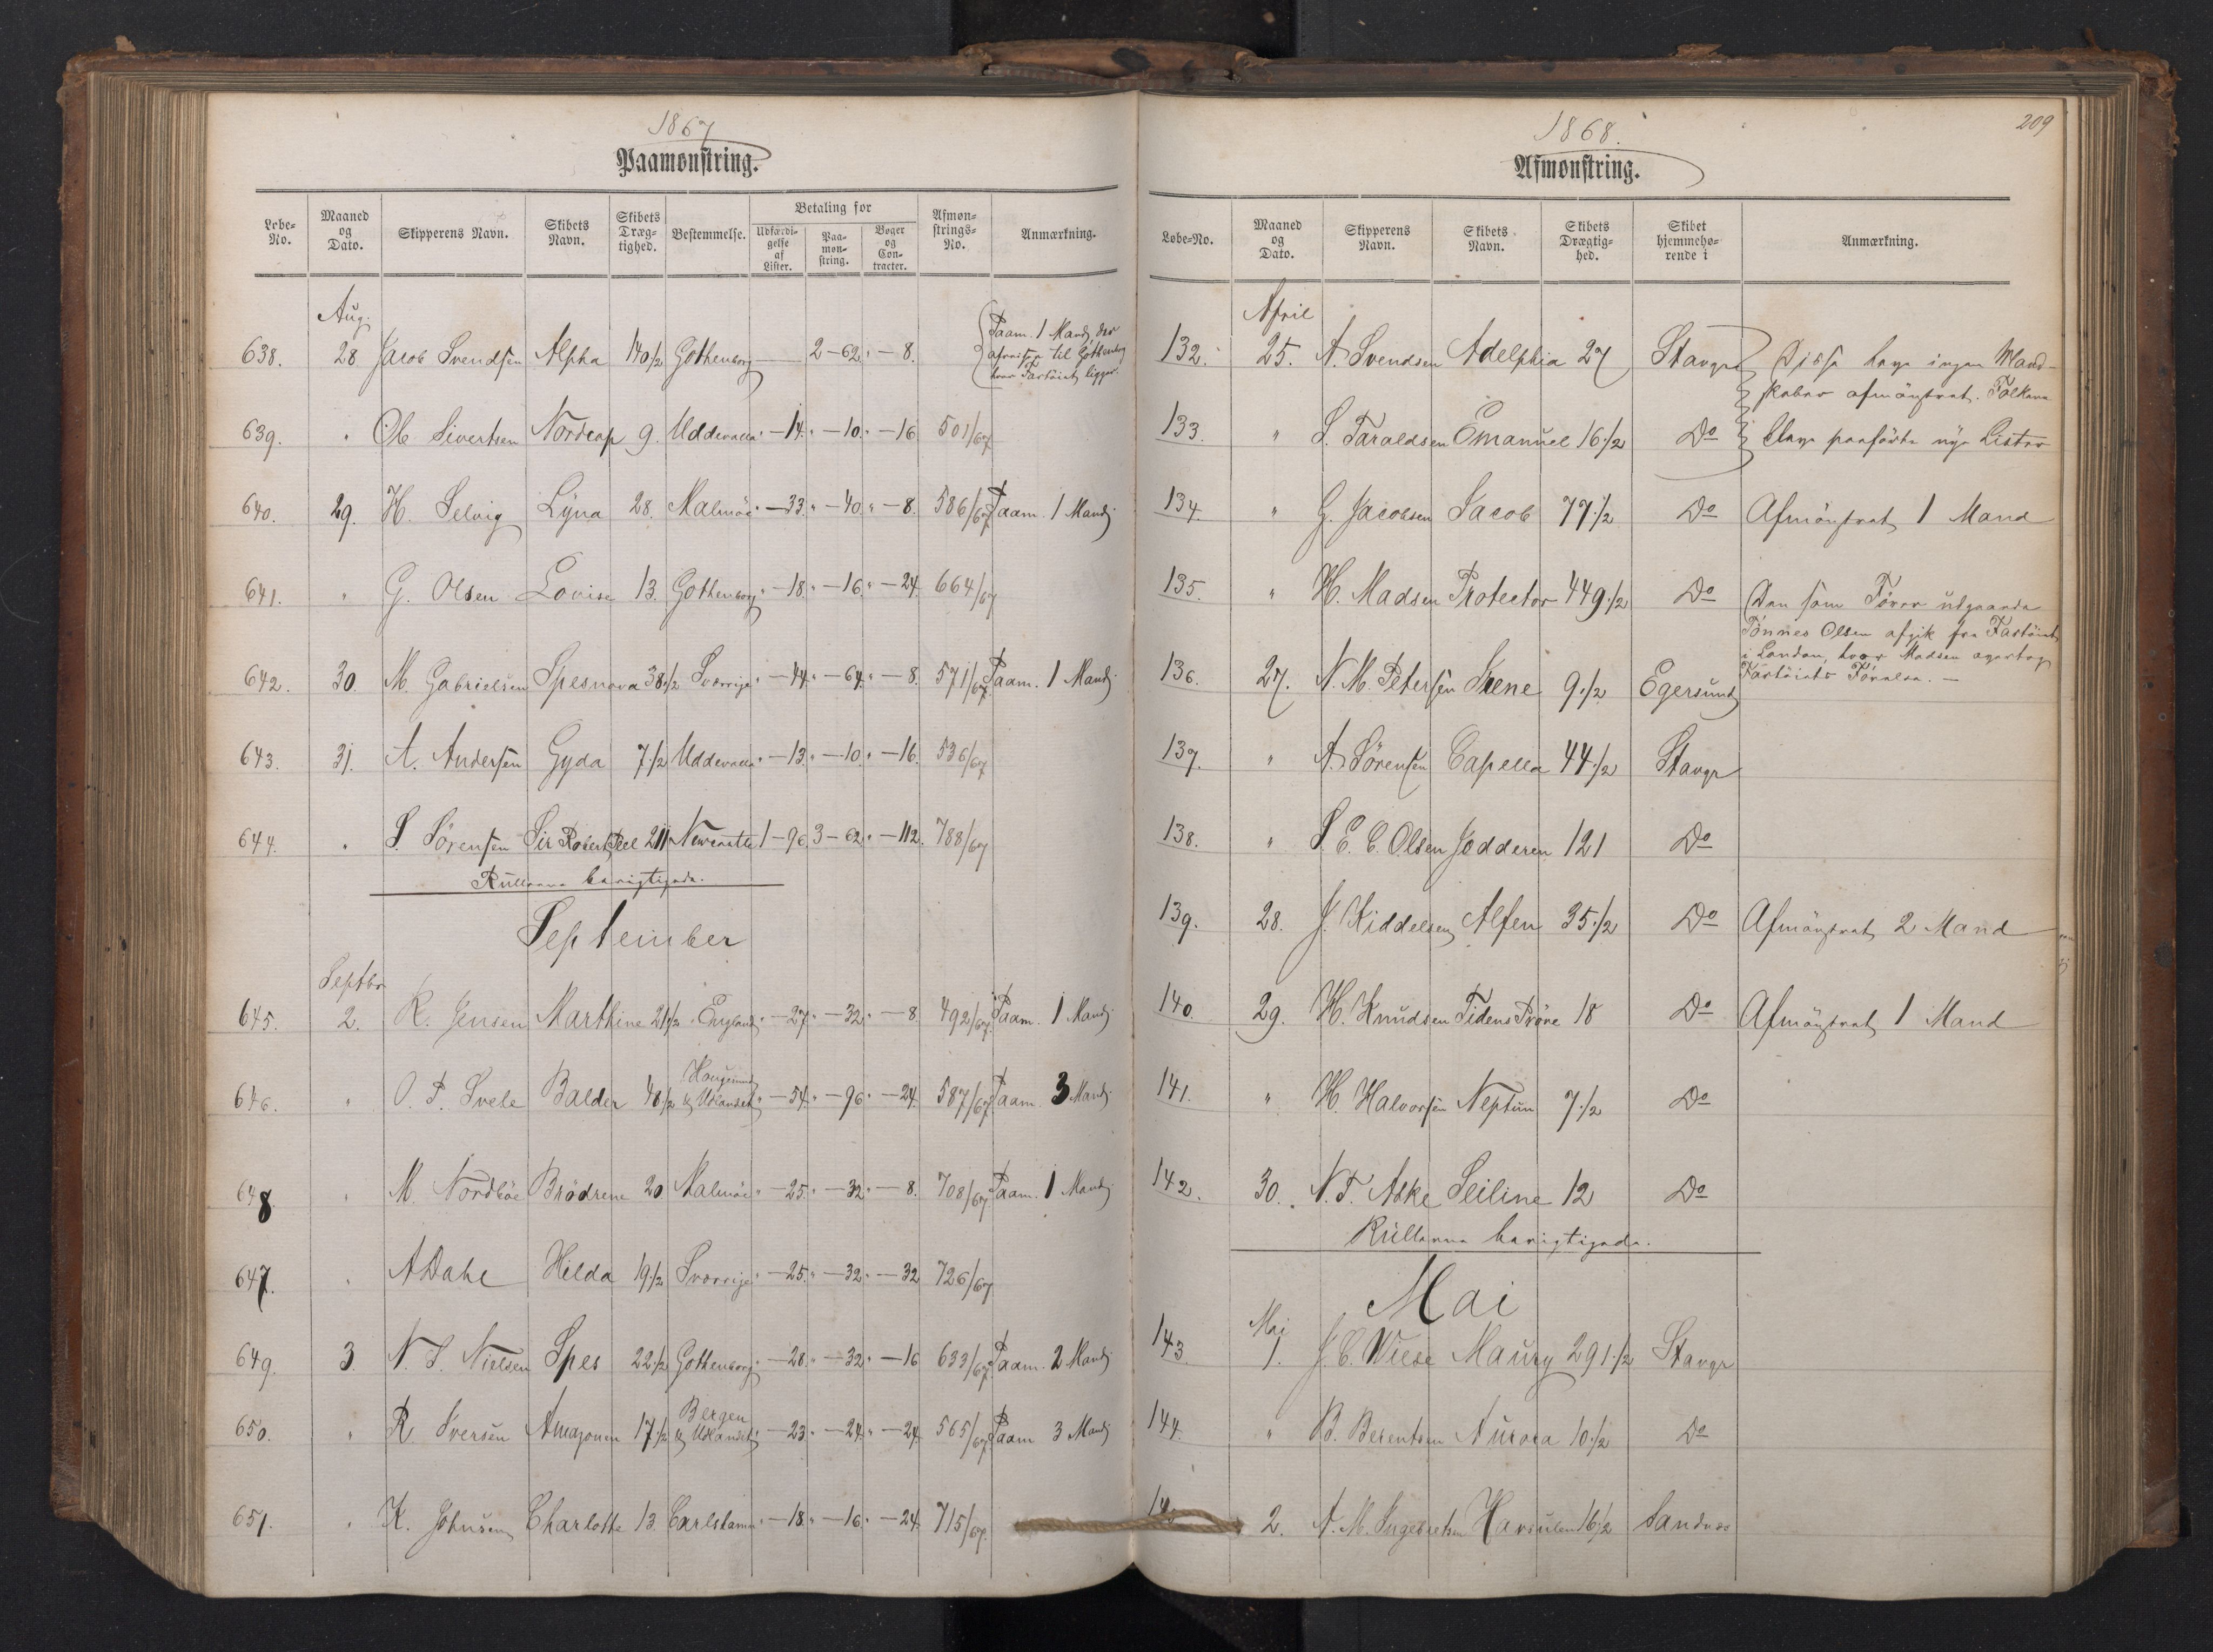 1867
Paamønstring.
Løbe-No. Maaned og Dato. Skipperens Navn. Skibets Navn. Skibets Dræg-tighed. Bestemmelse. Betaling for Udfærdi-gelse af Lister. Paa-møn-string. Bøger og Con-tracter. Afmøn-strings-No. Anmærkning.
Aug.
638. 28 Jacob Svendsen Alpha 140 1/2 Gothenborg — 2-62. " - 8. Paam. 1 Mand, der
afreiste til Gothenborg
hvor Fartöiet ligger.
639. " Ole Sivertsen Nordcap 9. Uddevalla " -14. " -10. " -16 501/67
640. 29. H. Selvig Lyna 28. Malmöe " -33. " -40. " -8. 586/67 Paam. 1 Mand.
641. " G. Olsen Lovise 13. Gothenborg " -18. " -16. " -24. 664/67
642. 30. M. Gabrielsen Spesnova 38 1/2 Sverrige " -44. " -64. " -8. 571/67 Paam. 1 Mand.
643. 31. A. Andersen Gyda 7 1/2 Uddevalla " -13. " -10. " -16. 536/67
644. " S. Sörensen Sir Robert Peel 211 Newcastle 1-96. 3-62. " -112. 788/67
Rullerne berigtigede.
September
Septbr
645. 2. R. Jensen Marthine 21 1/2 England " -27. " -32. " -8 492/67 Paam. 1 Mand.
646. " O. T. Svele Balder 48 1/2 Haugesund
& Udlandet " -54. " -96. " -24. 587/67 Paam. 3 Mand.
648. " M. Nordböe Brödrene 20 Malmöe " -25. " -32. " -8. 708/67 Paam. 1 Mand.
647. " A Dahl Hilda 19 1/2 Sverrige " -25. " -32. " -32 726/67
649. 3. N. S. Nielsen Spes 22 1/2 Gothenborg " -28. " -32. " -16 633/67 Paam. 2 Mand.
650. " R. Iversen Amazonen 17 1/2 Bergen
& Udlandet " -23. " -24. " -24. 565/67 Paam 3 Mand.
651. " K. Johnsen Charlotte 13. Carlshamn " -18. " -16. " -24. 715/67.
1868.
209
Afmønstring.
Løbe-No. Maaned og Dato. Skipperens Navn. Skibets Navn. Skibets Drægtig-hed. Skibet hjemmehø-rende i Anmærkning.
April
132. 25. A. Svendsen Adelphia 27 Stavgr Disse have ingen Mand-
skaber afmönstret. Folkene
133. " S. Taraldsen Emanuel 16 1/2 Do bleve paaförte nye Lister
134. " G. Jacobsen Jacob 77 1/2 Do Afmönstret 1 Mand
135. " H. Madsen Protector 449 1/2 Do Den som Förer udgaaende
Tönnes Olsen afgik fra Fartöiet
i London, hvor Madsen overtog
Fartöiets Förelse. —
136. 27. N. M. Petersen Irene 9 1/2 Egersund
137. " A. Sörensen Capella 44 1/2 Stavgr
138. " S. E. C. Olsen Jedderen 121 Do
139. 28. J. Kiddelsen Alfen 35 1/2 Do Afmönstret 2 Mand
140. 29. H. Knudsen Tidens Pröve 18 Do Afmönstret 1 Mand
141. " H. Halvorsen Neptun 7 1/2 Do
142. 30. N. T. Aske Seiline 12 Do
Rullerne berigtigede.
Mai
Mai
143. 1. J. C. Wiese Maury 291 1/2 Stavgr
144. " B. Berentsen Aurora 10 1/2 Do
2. A. M. Ingebretsen Havsulen 16 1/2 Sandnes